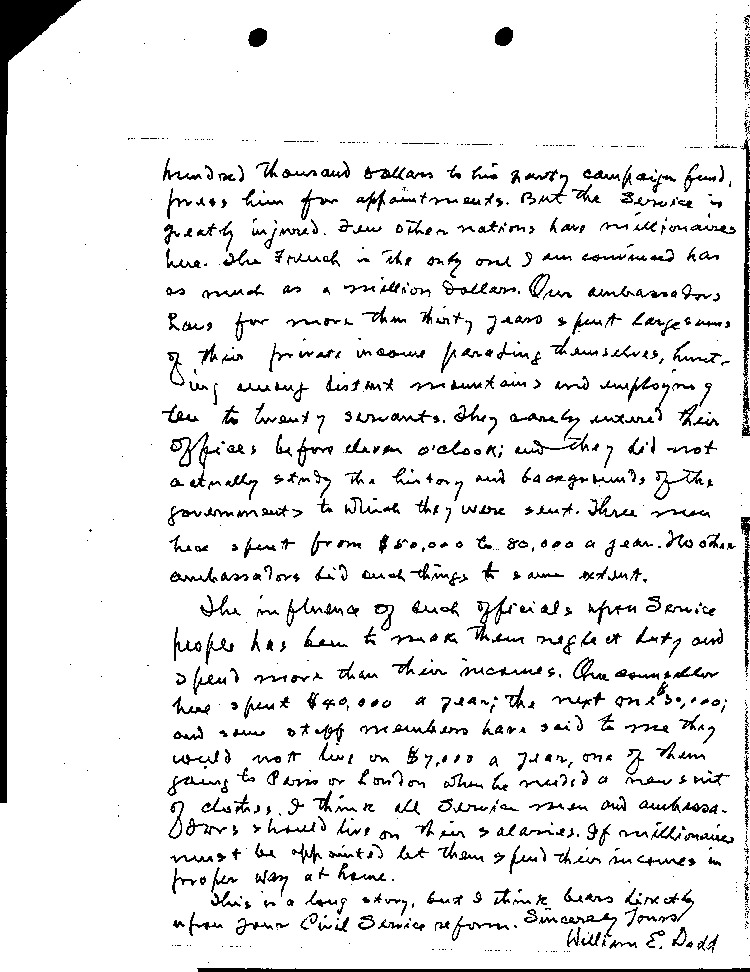 hundred thousand dollars to his party campaign fund,
press him for appointments. But the Service is
greatly injured. Few other nations have millionaires
here. The French is the only one I am convinced has
as much as a million dollars. Our ambassadors
have for more than thirty years spent large sums
of their private income parading themselves, hunt-
ing among distant mountains and employing
ten to twenty servants. They rarely entered their
offices before eleven o'clock; and they did not
actually study the history and backgrounds of the
governments to which they were sent. Three men
here spent from $50,000 to 80,000 a year. No other
ambassadors did such things to same extent.
The influence of such officials upon Service
people has been to make them neglect duty and
spend more than their incomes. One counsellor
here spent $40,000 a year; the next one $30,000;
and some staff members have said to me they
could not live on $7,000 a year, one of them
going to Paris or London when he needed a new suit
of clothes. I think all Service men and ambassa-
dors should live on their salaries. If millionaires
must be appointed let them spend their incomes in
proper way at home.
This is a long story, but I think bears directly
upon your Civil Service reform. Sincerely Yours
William E. Dodd